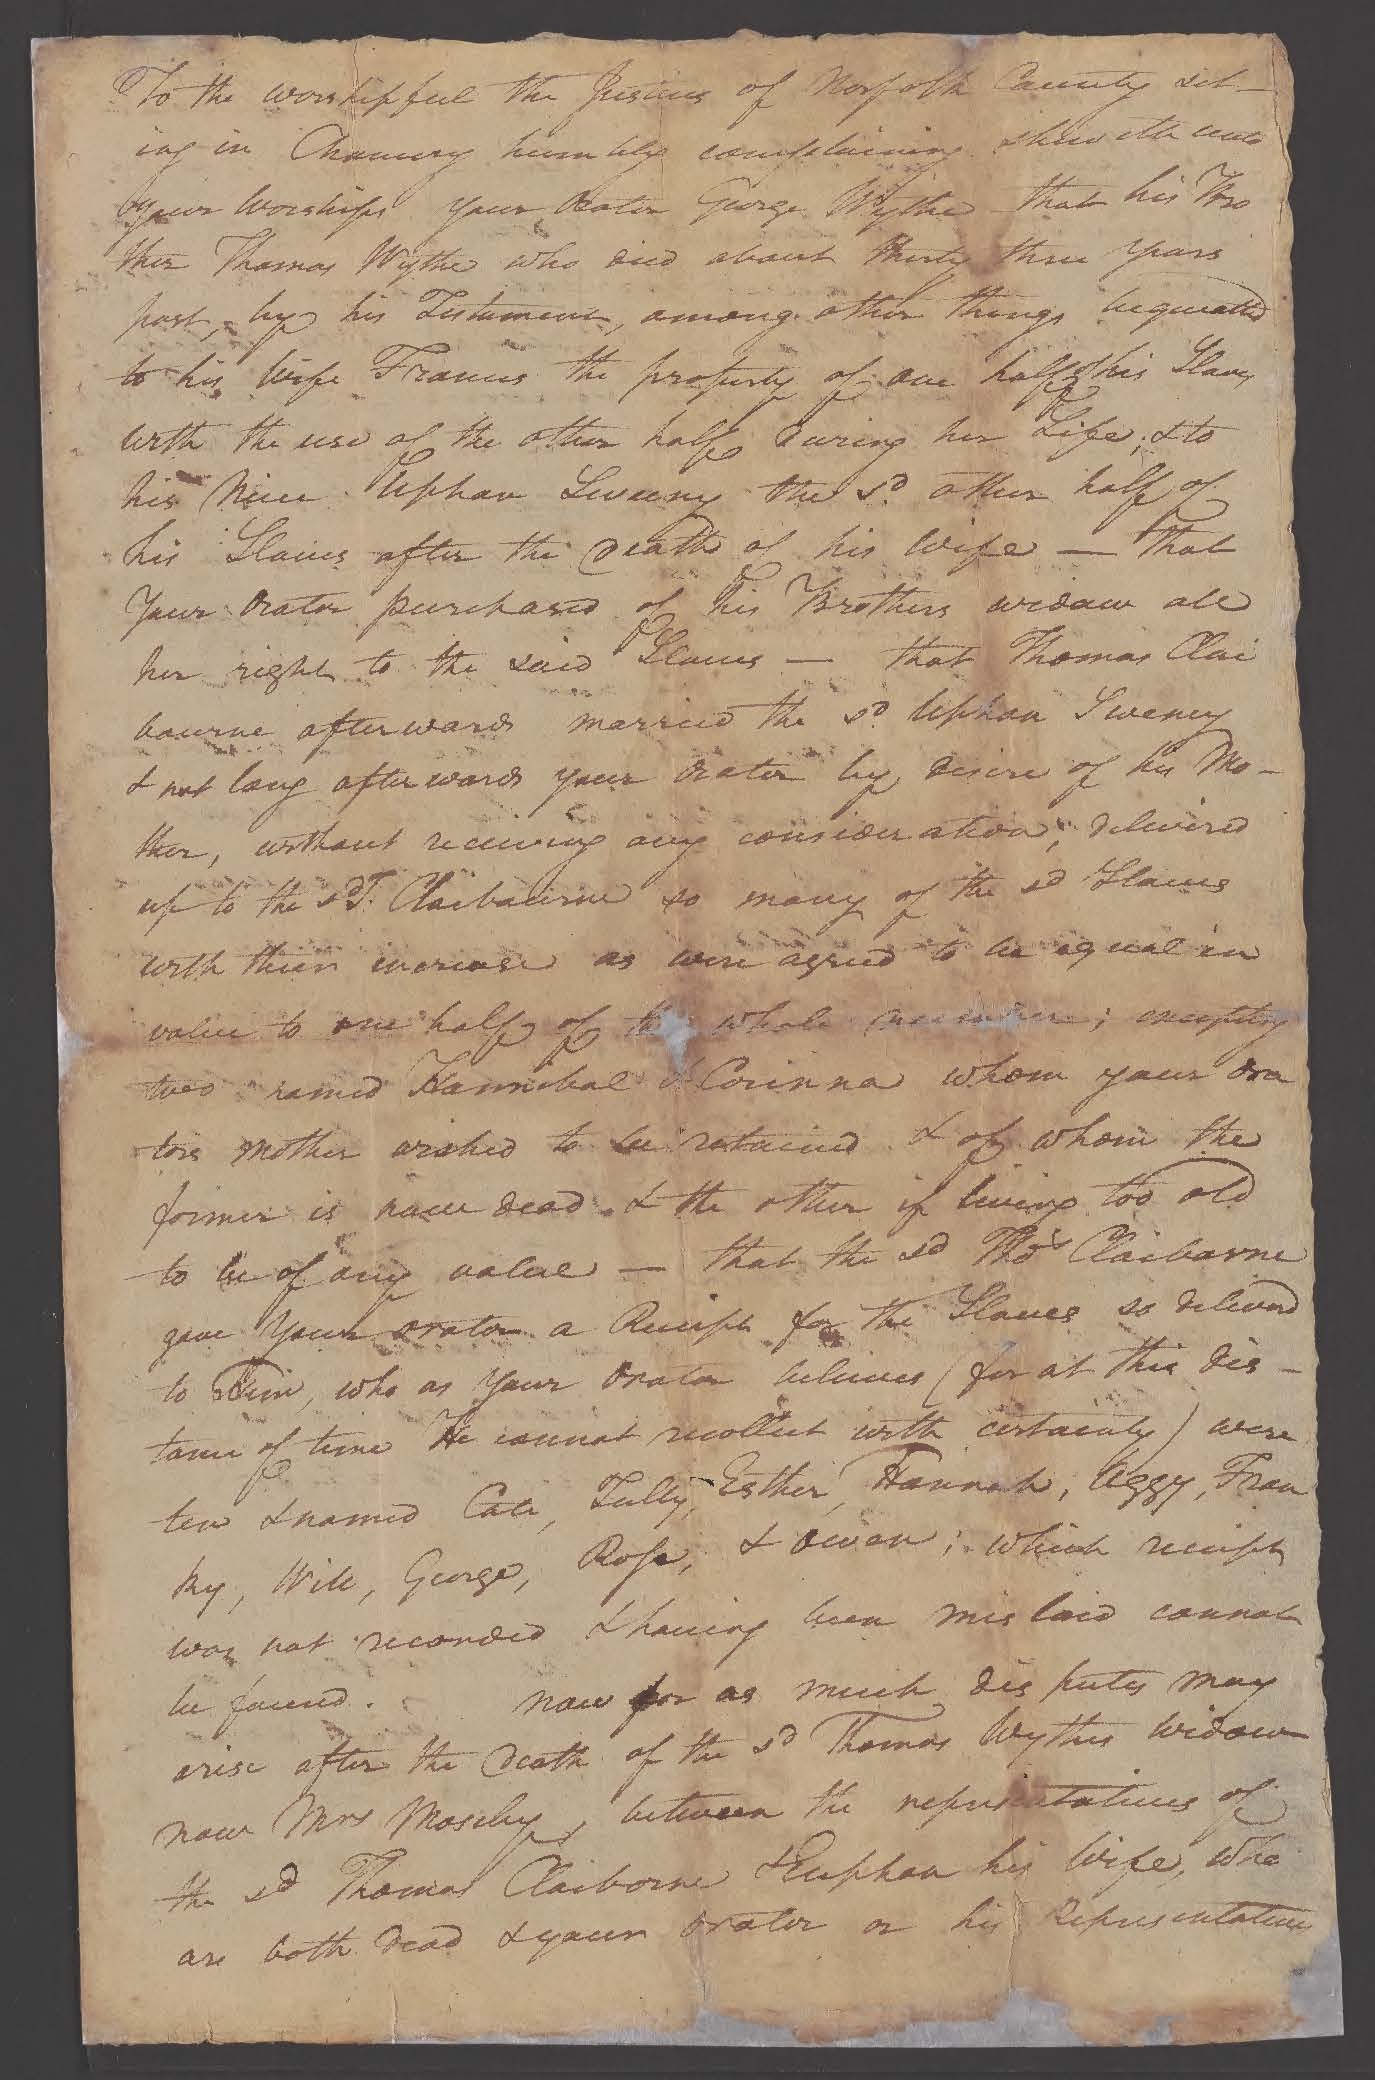 To the worshipful the Justices of Norfolk County sit-
ing in Chancery humbly complaining sheweth unto
your worships your Orator George Wythe that his Bro
ther Thomas Wythe who died about thirty three years
past, by his Testament, among other things bequeathed
to his wife Frances the property of one half of his Slaves
with the use of the other half during her Life, & to
his Niece Uphan Sweeny the sd. other half of
his Slaves after the death of his wife — that
Your Orator purchased of his Brothers widow all
her right to the said Slaves — that Thomas Clai
bourne afterwards married the sd. Uphan Sweney
& not long afterwards your Orator by desire of his Mo-
ther, without receiving any consideration, delivered
up to the sd T. Claibourne so many of the sd Slaves
with their increase as were agreed to be equal in
value to one half of the whole number; excepting
two named Hannibal & Corinna whom your ora
tors mother wished to be retained & of whom the
former is now dead & the other if living too old
to be of any value — that the sd Thos Claiborne
gave Your orator a Receipt for the Slaves so delivered
to Him, who as Your Orator believes (for at this dis-
tance of time He cannot recollect with certainty) were
ten & named Cate, Tully, Esther, Hannah, Aggy, Fran
ky, Will, George, Rose, & Owen; which receipt
was not recorded & having been mislaid cannot
be found. now for as much disputes may
arise after the Death of the sd Thomas Wythes widow
now Mrs Moseby, between the representatives of
the sd Thomas Claiborne & Euphan his Wife, who
are both dead & your orator or his Representatives